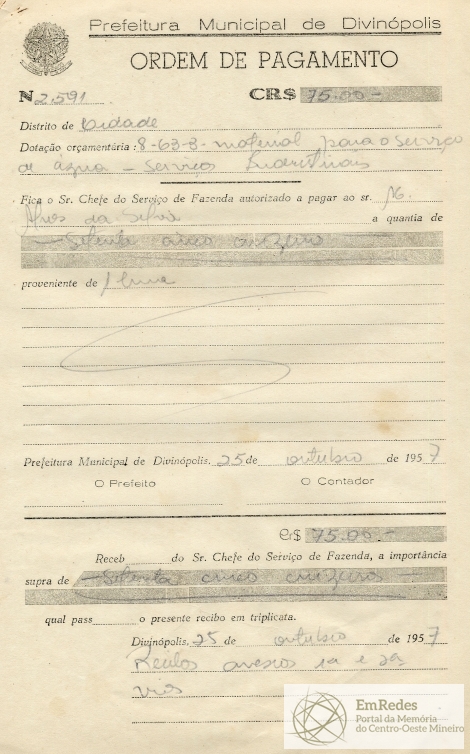 Prefeitura Municipal de Divinópolis
ORDEM DE PAGAMENTO
N 2.591 CR$ 75.00.-
Distrito de Cidade
Dotação orçamentária: 8-63-3- material para o serviço
de água - Serviços Industriais
Fica o Sr. Chefe do Serviço de Fazenda autorizado a pagar ao sr.
Alves da Silva a quantia de
- Setenta cinco cruzeiro
proveniente de
Prefeitura Municipal de Divinópolis, 25 de outubro de 1957
O Prefeito O Contador
Cr$ 75.00.-
Receb do Sr. Chefe do Serviço de Fazenda, a importância
supra de - Setenta cinco cruzeiros -
qual pass o presente recibo em triplicata.
Divinópolis, 25 de outubro de 1957
Recibos anexos 1a e 2a
vias
EmRedes
Portal da Memória
do Centro-Oeste Mineiro